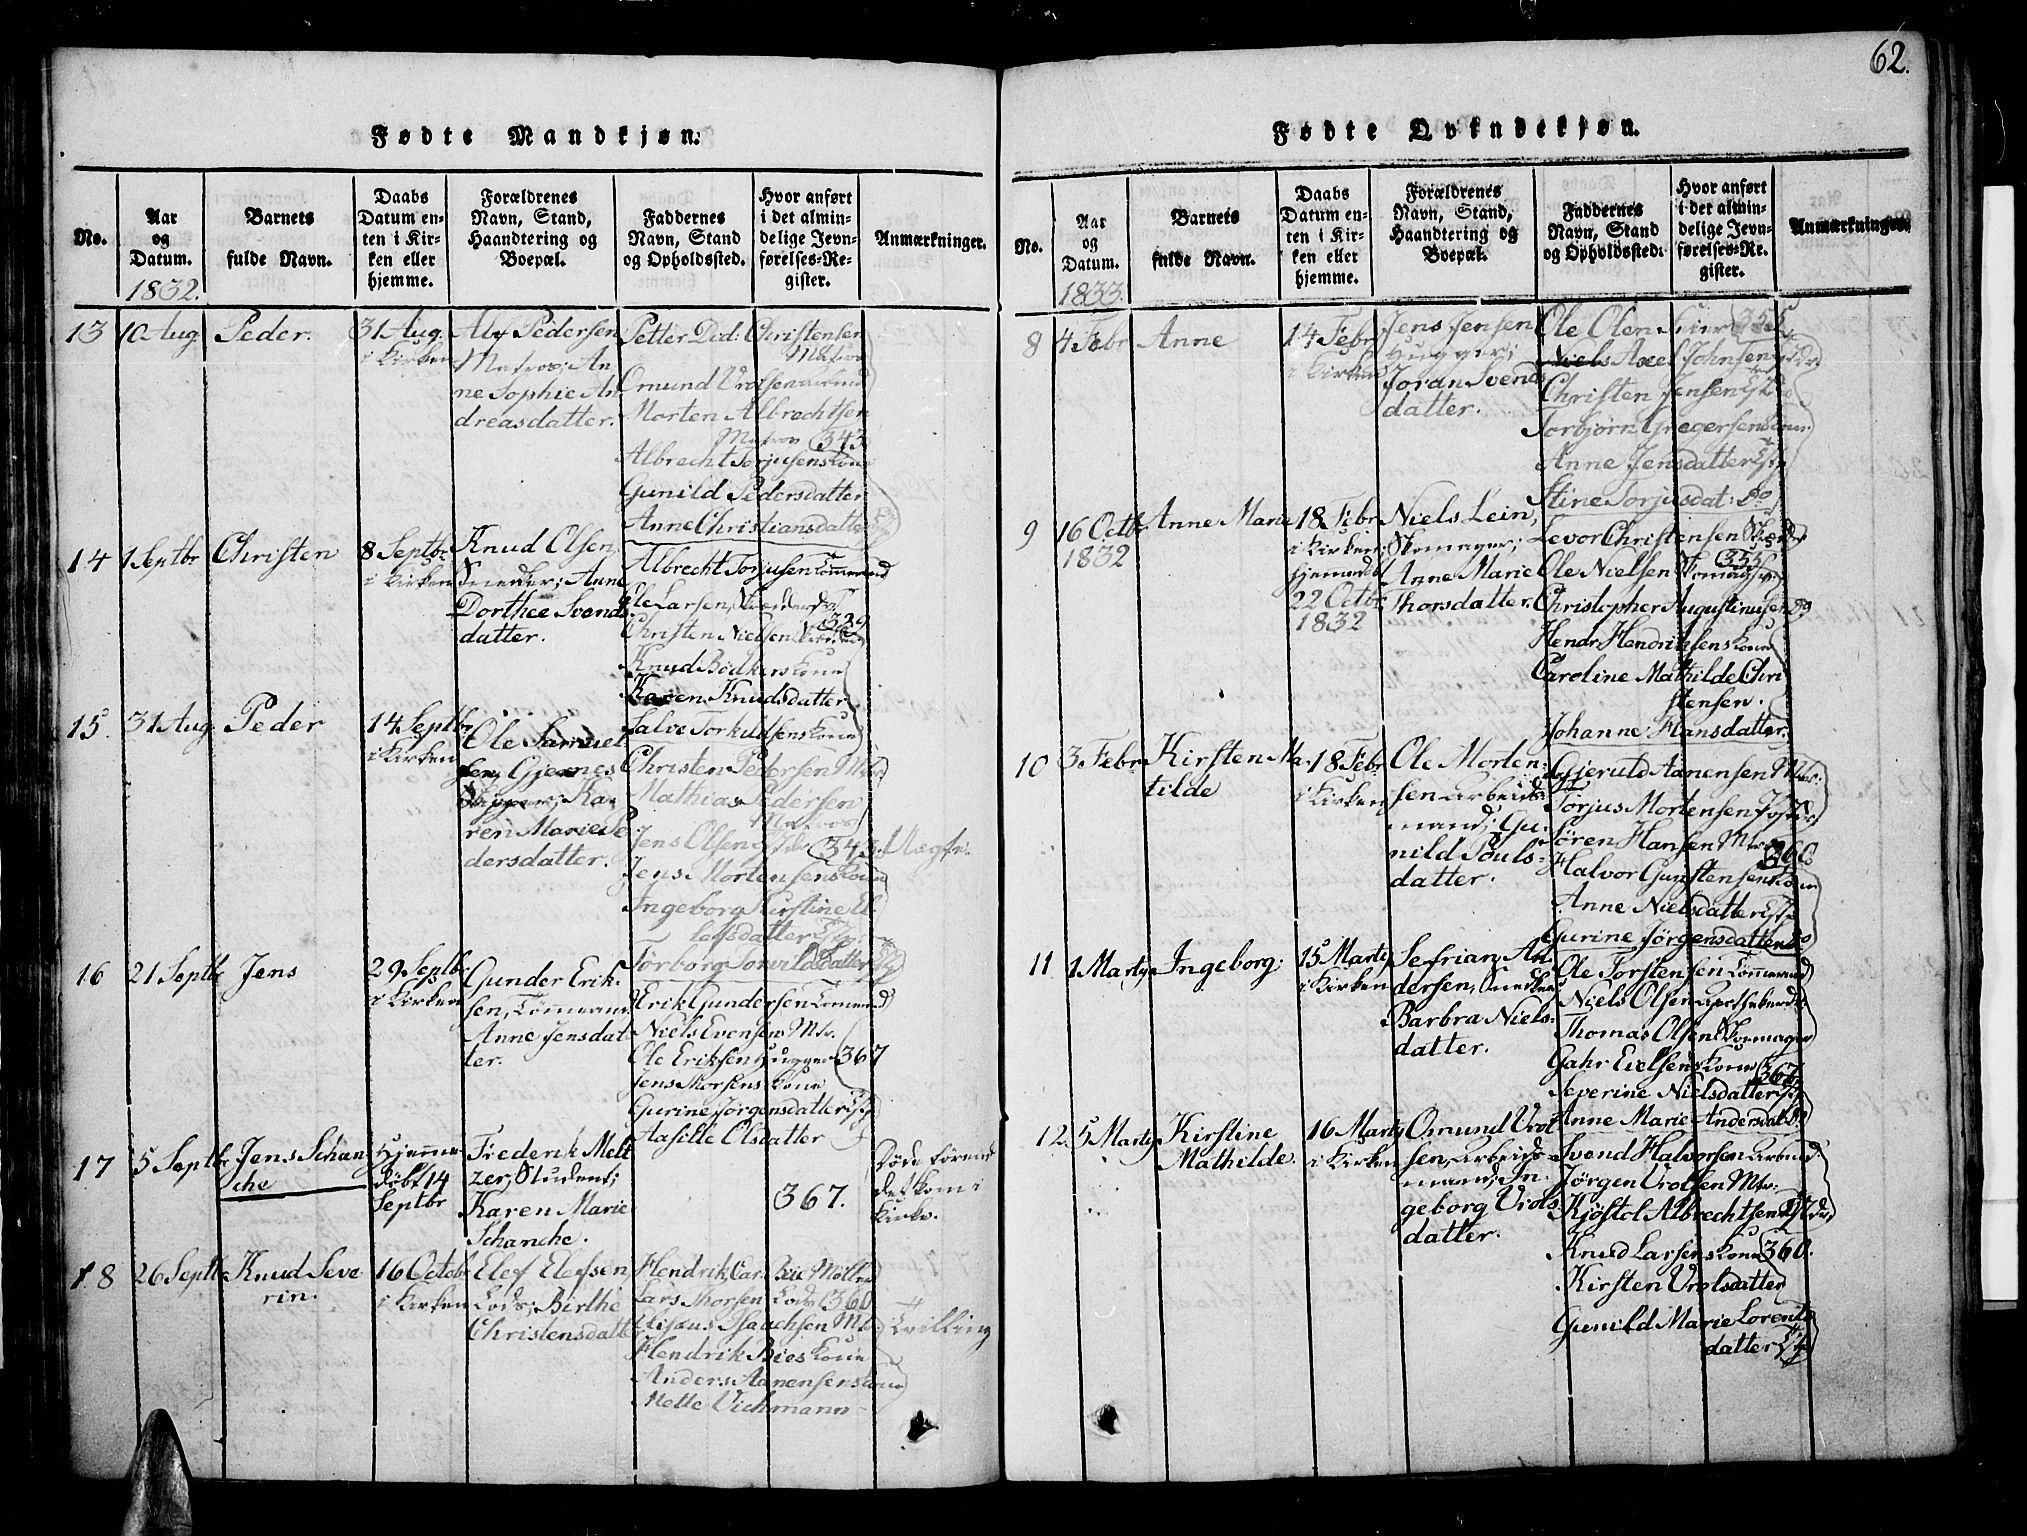 62.
Fødte Mandkjøn.
No.
Aar og Datum.
Barnets fulde Navn.
Daabs Datum enten i Kirken eller hjemme.
Forældrenes Navn, Stand, Haandtering og Boepæl.
Faddernes Navn, Stand og Opholdssted.
Hvor anført i det almindelige Jevnførelses-Register.
Anmærkninger.
1832.
13
10 Aug
Peder.
31 Aug.
i Kirken
Alf Pedersen
Matros; An
ne Sophie An
dreasdatter.
Petter Did: Christensen
Matros
Omund Vrolsen
Morten Albrechtsen
Matros 343
Albrecht Torjusens Kone
Gunild Pedersdatter
Anne Christiansdatter
14
1 Septbr
Christen
8 Septbr
i Kirken
Knud Olsen
Sneker; Anne
Dorthee Svends
datter.
Albrecht Torjusen Tømmermd
Ole Larsen,
329
Christen Nielsen
Knud Bødkers Kone
Karen Knudsdatter
15.
31 Aug
Peder
14 Septbr
i Kirken
Ole Samuel
sen, Gjernes
Skipper; Ka
ren Marie Pe
dersdatter.
Salve Torkildsens Kone
Christen Pedersen Mtr.
Mathias Pedersen
Matros
Jens Olsen 343.
Jens Mortensens Kone
Ingeborg Kirstine El
lefsdatter
Torborg
16
21 Septbr
Jens
29 Septbr
i Kirken
Gunder Erik
sen, Tømmerm
Anne Jensdat
ter.
Erik Gundersen Tømmermd
Niels Evensen Mtr.
Ole Eriksen Hugger 367
Jens Thorsens Kone
Gurine Jørgensdatter
Aasille Olsdatter
17
5 Septbr
Jens Schan
che
Hjemme
døbt 14
Septbr
Frederik Melt
zer, Student;
Karen Marie
Schanche.
367.
Døde førend
det kom i
Kirke.
18
26 Septbr
Knud Seve
rin.
16 Octobr
i Kirken
Elef Elefsen
Lods; Birthe
Christensdatt
Hendrik Car. Bie Møller
Lars Thorsen Lods 360
Elisæus Isaachsen Mtr
Hendrik Bies Kone
Anders Aanensens Kone
Mette Vichmann
Tvilling
Fødte Qvindekjøn.
No.
Aar og Datum.
Barnets fulde Navn.
Daabs Datum enten i Kirken eller hjemme.
Forældrenes Navn, Stand, Haandtering og Boepæl.
Faddernes Navn, Stand og Opholdssted.
Hvor anført i det almindelige Jevnførelses-Register.
Anmærkninger.
1833.
8
4 Febr
Anne
14 Febr
i Kirken
Jens Jensen
Hugger;
Joran Svends
datter.
Ole Olen 355
Niels Axel Johnsen
Christen Jensen
Torbjørn Gregersens Kone
Anne Jensdatter
Stine Torjusdat: do
9
16 Octbr
1832
Anne Marie
18 Febr
i Kirken;
hjemmedøbt
22 Octbr
1832
Niels Lein,
Skomager;
Anne Marie
Thorsdatter.
Levor Christensen
Ole Nielsen 355
Christopher Augustinusen do
Hendr: Hendriksens Kone
Caroline Mathilde Chri
stensen.
Johanne Hansdatter.
10
3 Febr
Kirsten Ma
tilde
18 Febr
i Kirken
Ole Morten
sen Arbeids
mand; Gu
nild Pouls
datter.
Gjeruld Aanensen Mtr.
Torjus Mortensen
Søren Hansen Mtr. 360
Halvor Gunstensens Kone
Anne Nielsdatter
Gurine Jørgensdatter do
11
1 Marty
Ingeborg.
15 Marty
i Kirken
Sefrian An
dersen, Snedker
Barbra Niels
datter.
Ole Torstensen Tømmermd
Niels Olsen
Thomas Olsen Skomager
Gahr Eielsens Kone 367
Severine Nielsdatter
Anne Marie Andersdat do
12.
5 Marty
Kirstine
Mathilde.
16 Marty
i Kirken
Omund Vrol
sen, Arbeids
mand; In
geborg Vrols
datter.
Svend Halvorsen Arbmd
Jørgen Vrolsen Mtr.
Kjøstol Albrechtsen
Knud Larsens Kone 360.
Kirsten Vrolsdatter
Gunild Marie Lorents
datter